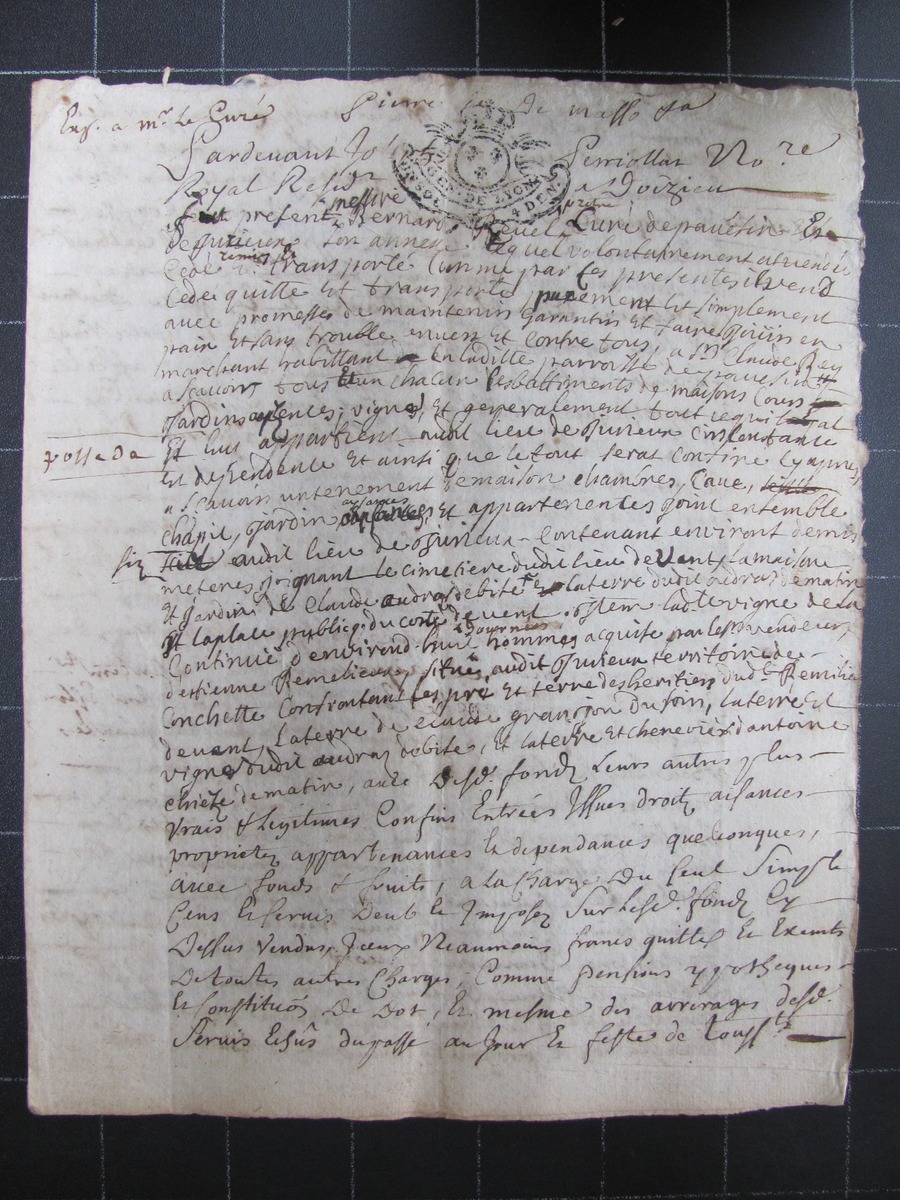 Exp. a mr. Le Curé
Pierre de masso sa
Pardevant Perriollat No.re
GEN. DE LYON
4 DEN.
Royal Resid a Doizieu
messire
fut present Bernard Curé de pavezin Et
de jurieux son annexe Lequel volontairement at vendu
remis
Cedé transporté Comme par Ces presentes il vend
Cede quitte Et transporte purement Et simplement
avec promesses de maintenir garantir Et faire jouir en
paix Et sans trouble envers Et contre tous, a Sr. Claude Rey
marchant habittant en laditte parroisse de pavesin
a scavoir tous Et un chacun Les battiments de maisons Cours
Jardins vignes, Et generalement tout ce qui
possede
Et luy appartient audit lieu de jurieux Circonstance
Et dependente Et ainsi que le tout serat confine Cy apres
a scavoir un tenement de maison chambres, Cave,
aysances
chapit, Jardin Et appartenentes joint ensemble
siz audit lieu de jurieux contenant environt demis
meteres joignant Le cimetiere dudit lieu de vent, la maison
Et Jardin de Claude audras debite la terre dudit audras de matin
Et la place publicq. du costé de vent. Item lad.te vigne de la
journées
Continue d'environd huit hommes acquise par led. vendeur
d'ettienne Remelieux situé audit jurieux territoire de
Conchette Confrontant les pré Et terre des heritiers dud. Remilie
devent, la terre de claude granjon du soir, la terre Et
vigne dudit audras de bize, Et la terre Et chenevier d'antoine
de matin, avec Desd. fondz Leurs autres plus
Vrais & Legitimes Confins Entrées Issues droitz aisances
proprietez appartenances Et dependances quelconques,
avec fonds & fruits, a la Charge Du seul Simple
Cens Et servis Deub Et Imposez Sur Lesd. fondz Cy
Dessus Vendus, Iceux Neaumoins francs quittes Et Exempts
De toutes autres Charges, Comme pensions ypotheques
Et Constitu͠on De Dot, Et mesme des arrerages desd.
Servis Echûs du passé au Jour Et feste de Touss.ts